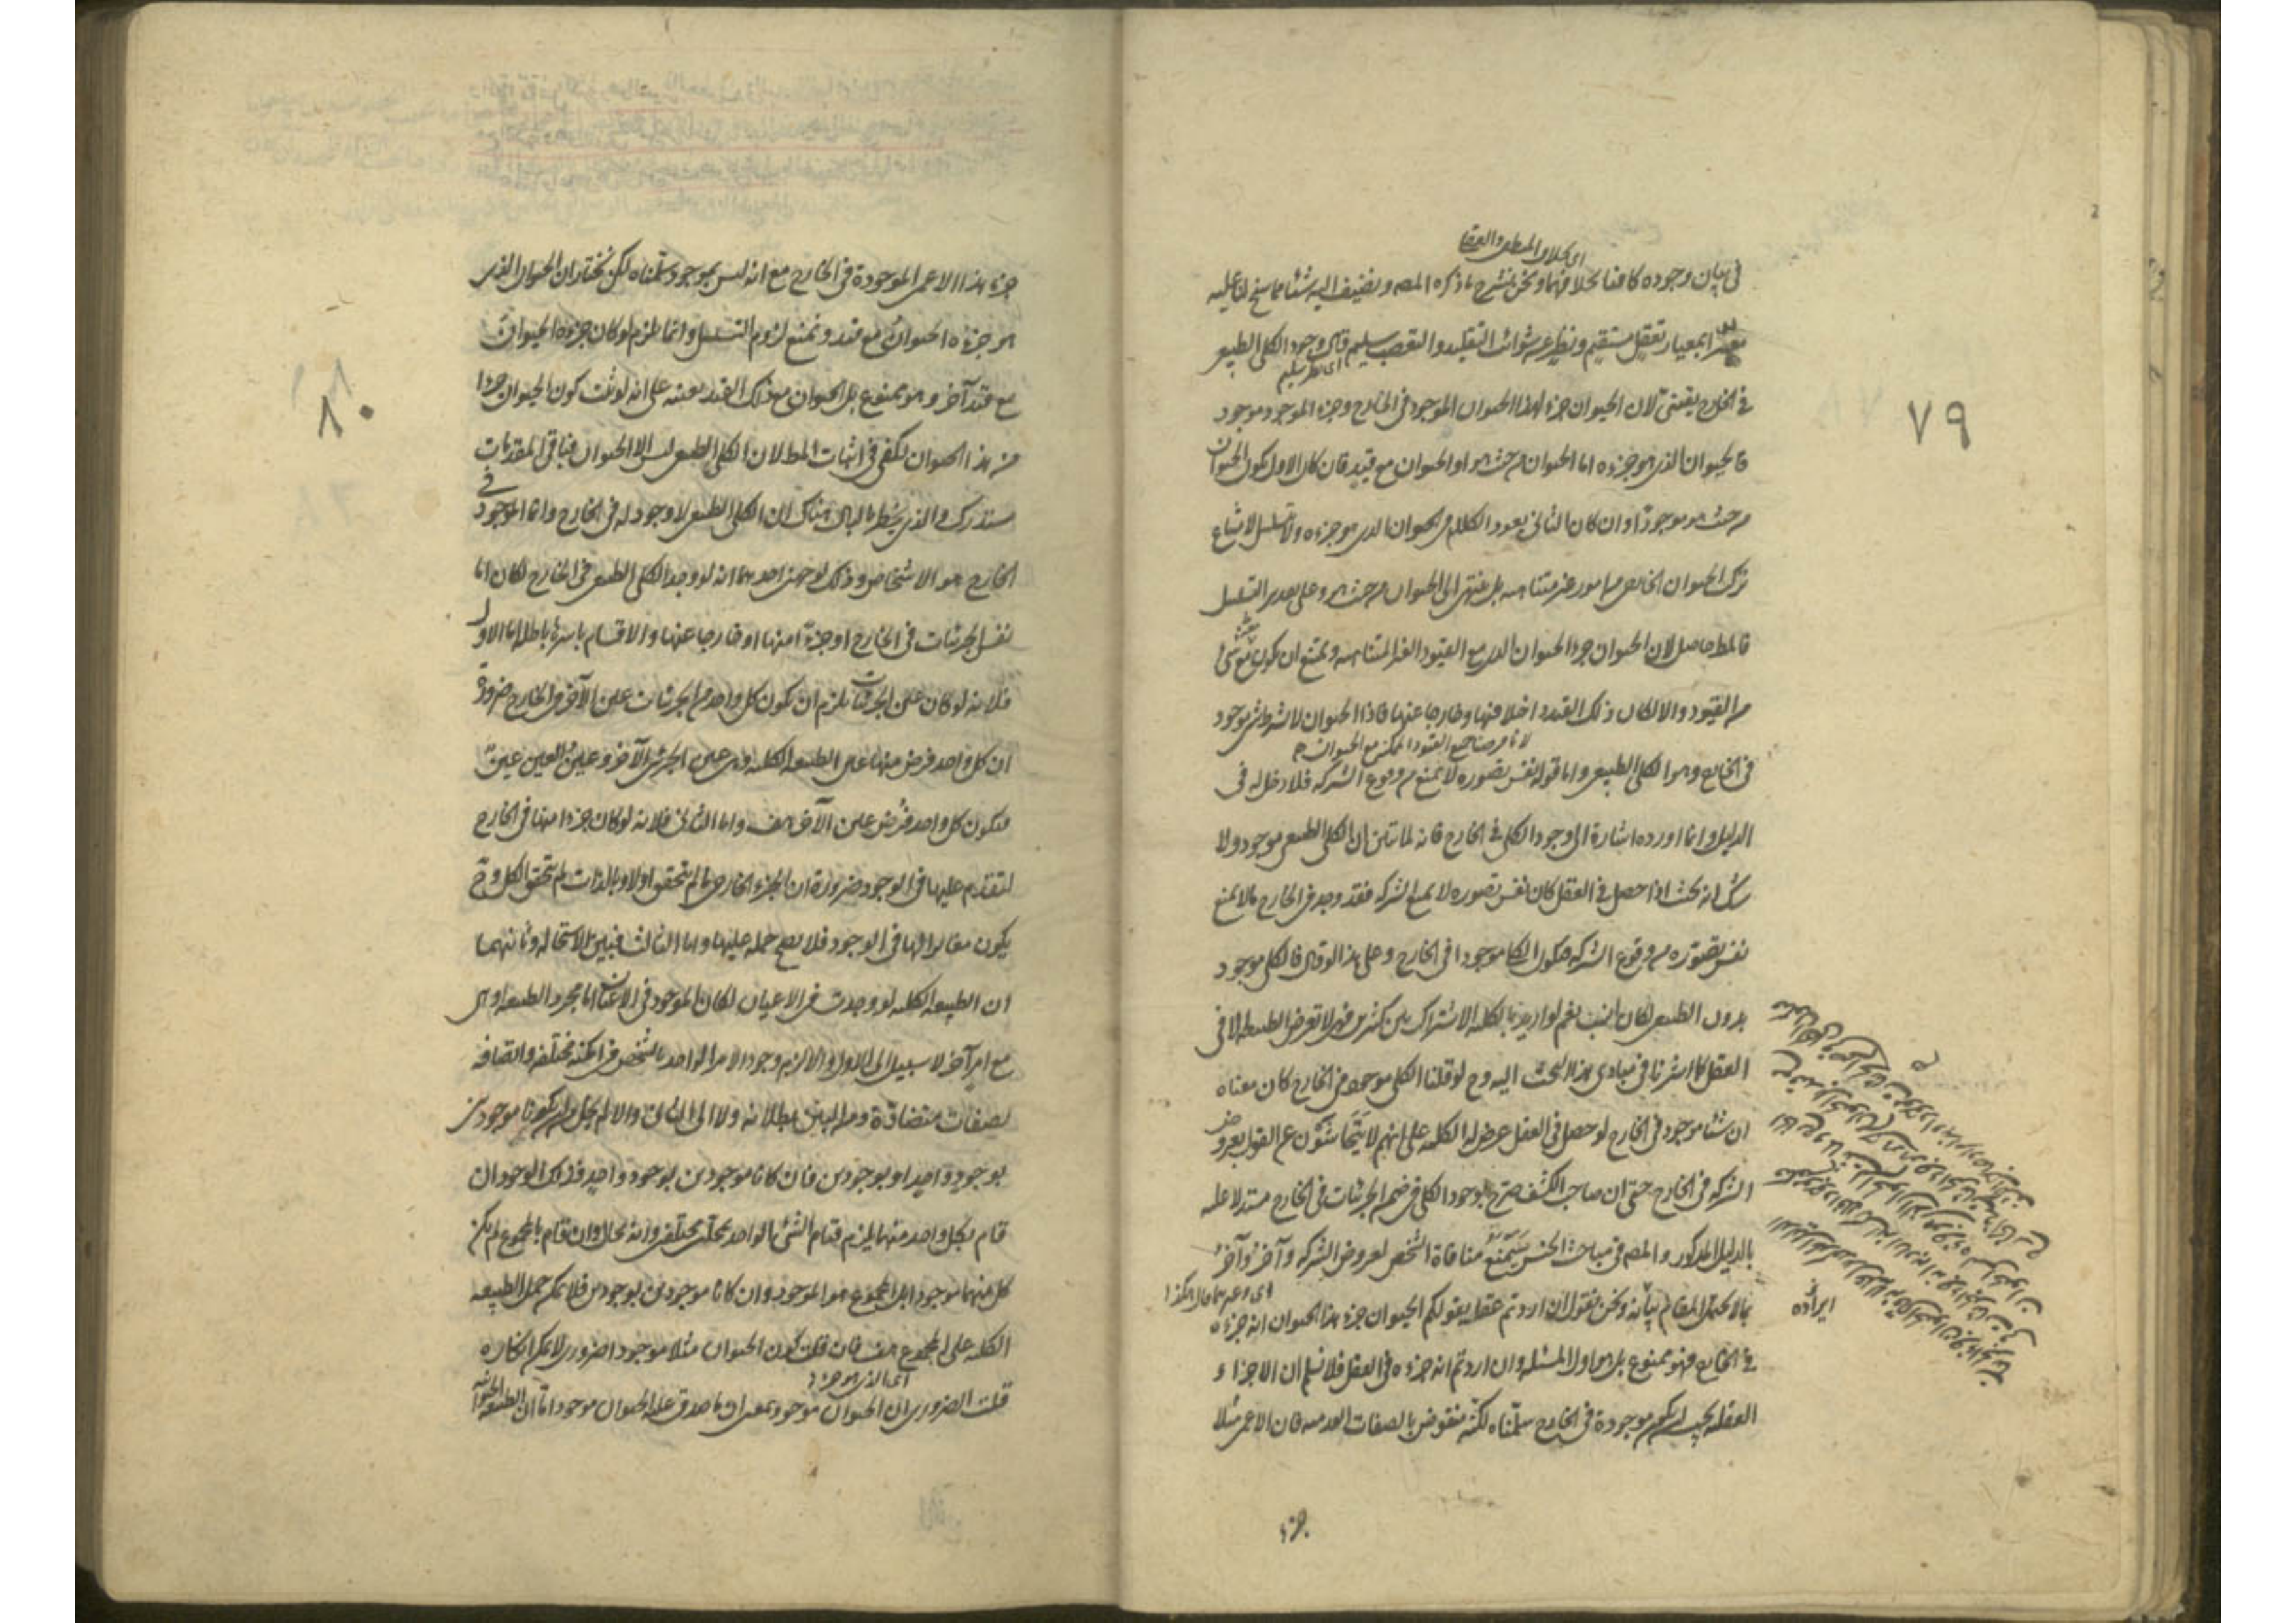 اى الكلام المنطقى والعرفا
فى بيان وجوده كافنا بخلافهما ونحن نشرح ما ذكره المصـ ونضيف اليه شيئا مما سنح لنا عليه
بمعيار تعقل مستقيم ونظر عن شوائب التقليد والتعصب سليم قال وجود الكلى الطبيعى
اى نظر سليم
فى الخارج يقينى لان الحيوان جزء لهذا الحيوان الموجود فى الخارج وجزء الموجود موجود
فالحيوان الذى هو جزءه اما الحيوان من حيث هو او الحيوان مع قيد فان كان الاول يكون الحيوان
من حيث هو موجودا وان كان الثانى يعود الكلام فى الحيوان الذى هو جزءه ولا يتسلسل لامتناع
تركب الحيوان الخارجى من امور غير متناهيه بل ينتهى الى الحيوان من حيث هو وعلى تقدير التسلسل
فالمط حاصل لان الحيوان جزء الحيوان الذى مع القيود الغير المتناهيه ويمتنع ان يكون مع شئ
من القيود والا لكان ذلك القيد داخلا فيها وخارجا عنها فاذا الحيوان لا بشرط شئ موجود
لانا فرضنا جميع القيود الممكن مع الحيوان
فى الخارج وهو الكلى الطبيعى واما قوله نفس تصوره لا يمنع من وقوع الشركه فلا دخل له فى
الدليل وانما اورده اشارة الى وجود الكلى فى الخارج فانه لما تبين ان الكلى الطبيعى موجود ولا
شك انه بحيث اذا حصل فى العقل كان نفس تصوره لا يمنع الشركه فقد وجد فى الخارج ما لا يمنع
نفس تصوره من وقوع الشركه فيكون الكلى موجودا فى الخارج وعلى هذا لو قال فالكلى موجود
بدون الطبيعى لكان انسب نعم لو اريد بالكليه الاشتراك بين كثيرين فهى لا تعرض الطبيعه الا فى
العقل كما اشرنا فى مبادى هذا البحث اليه وح لو قلنا الكلى موجود فى الخارج كان معناه
ان شيئا موجود فى الخارج لو حصل فى العقل عرض له الكليه على انهم لا يتحاشون عن القول بعروض
الشركه فى الخارج حتى ان صاحب الكشف صرح بوجود الكلى فى ضمن الجزئيات فى الخارج مستدلا عليه
بالدليل المذكور والمصـ فى مباحث الجنس سيمنع منافاة الشخص لعروض الشركه وآخر وآخر
بما لا يحتمل المقام بيانه ونحن نقول ان اردتم بقولكم الحيوان جزء هذا الحيوان انه جزءه
فى الخارج فهو ممنوع بل هو اول المسئله وان اردتم انه جزءه فى العقل فلا نسلم ان الاجزاء
العقليه يجب ان يكون موجودة فى الخارج سلمناه لكنه منقوض بالصفات العدميه فان الاعمى مثلا
جزء
ايراده
٧٩
جزء هذا الاعمى الموجودة فى الخارج مع انه ليس بموجود سلمناه لكن نختار ان الحيوان الذى
هو جزءه الحيوان مع قيد ونمنع لزوم التسلسل وانما يلزم لو كان جزءه الحيوان
مع قيد آخر وهو ممنوع بل الحيوان مع ذلك القيد بعينه على انه لو ثبت كون الحيوان جزءا
من هذا الحيوان لكفى فى اثبات المط لان الكلى الطبيعى ليس الا الحيوان فباقى المقدمات
مستدرك والذى يخطر بالبال هناك ان الكلى الطبيعى لا وجود له فى الخارج وانما الموجود فى
الخارج هو الاشخاص وذلك لوجهين احدهما انه لو وجد الكلى الطبيعى فى الخارج لكان اما
نفس الجزئيات فى الخارج او جزءا منها او خارجا عنها والاقسام باسرها باطله اما الاول
فلانه لو كان عين الجزئيات يلزم ان يكون كل واحد من الجزئيات عين الآخر فى الخارج ضرورة
ان كل واحد فرض منها عين الطبيعه الكليه وهى عين الجزئى الآخر وعين العين عين
فيكون كل واحد فرض عين الآخر هف واما الثانى فلانه لو كان جزءا منها فى الخارج
لتقدم عليها فى الوجود ضرورة ان الجزء الخارجى ما لم يتحقق اولا وبالذات لم يتحقق الكل وح
يكون مغايرا لها فى الوجود فلا يصح حمله عليها واما الثالث فبين الاستحاله وثانيهما
ان الطبيعه الكليه لو وجدت فى الاعيان لكان الموجود فى الاعيان اما مجرد الطبيعه او هى
مع امر آخر لا سبيل الى الاول والا لزم وجود الامر الواحد بالشخص فى امكنه مختلفه واتصافه
بصفات متضادة ومن البين بطلانه ولا الى الثانى والا لم يخل من ان يكونا موجودين
بوجود واحد او بوجودين فان كانا موجودين بوجود واحد فذلك الوجود ان
قام بكل واحد منهما يلزم قيام الشئ الواحد بمحلين مختلفين وانه محال وان قام بالمجموع لم يكن
كل منهما موجودا بل المجموع هو الموجود وان كانا موجودين بوجودين فلا يمكن حمل الطبيعه
الكليه على المجموع هف فان قلت كون الحيوان مثلا موجودا ضرورى لا يمكن انكاره
اى الذى هو جزء
قلت الضرورى ان الحيوان موجود بمعنى ان ما صدق عليه الحيوان موجود اما ان الطبيعه الحيوانيه
٨٠